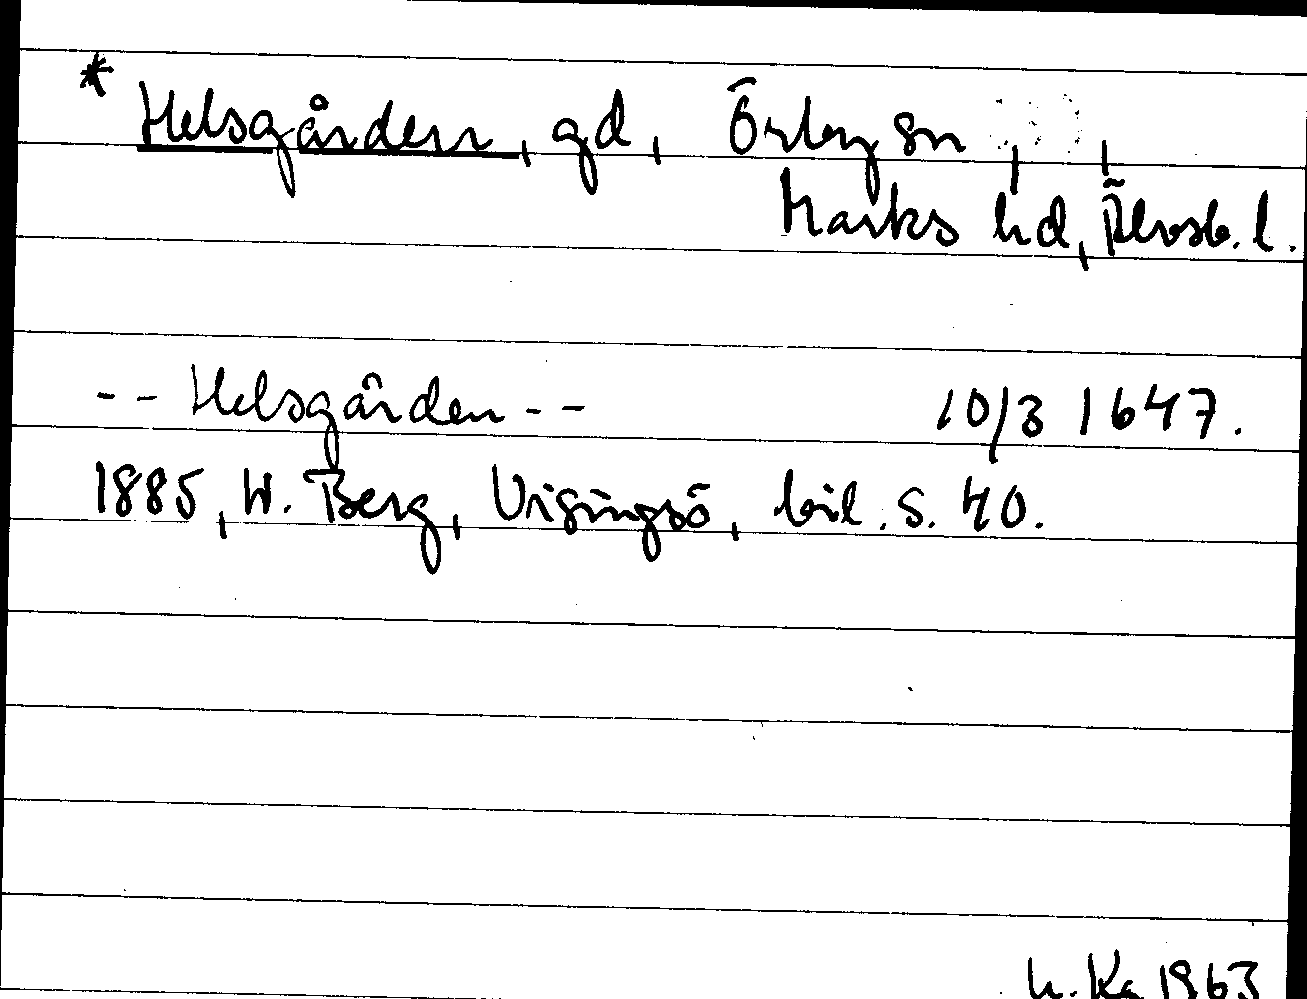 * Helsgården, gd, Örby sn, ,
Marks hd, Älvsb. l.
-- Helsgården -- 10/3 1647.
1885, W. Berg, Visingsö, bil. s. 40.
H. Ka 1963